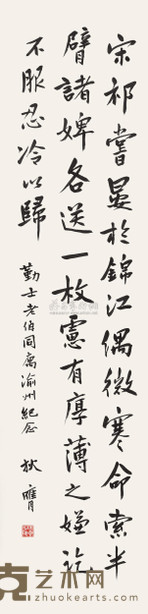 宋祁嘗晏於錦江偶微寒命索半
臂諸婢各送一枚慮有厚薄之嫌訖
不服忍冷以歸
勤士老伯同寓渝州紀念 狄膺
艺术网